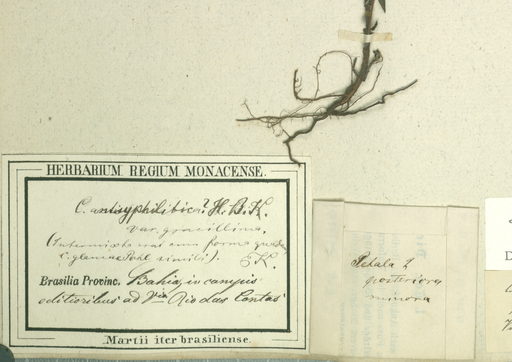 HERBARIUM REGIUM MONACENSE.
C. antisyphilitica? H. B. K.
var. gracillima,
(Intermixta erat cum forma
C. glumae Pohl simili). E K.
Brasilia Provinc. Bahia, in campis
editioribus ad Vam Rio das Contas
Martii iter brasiliense.
Petala 2
posteriora
minora